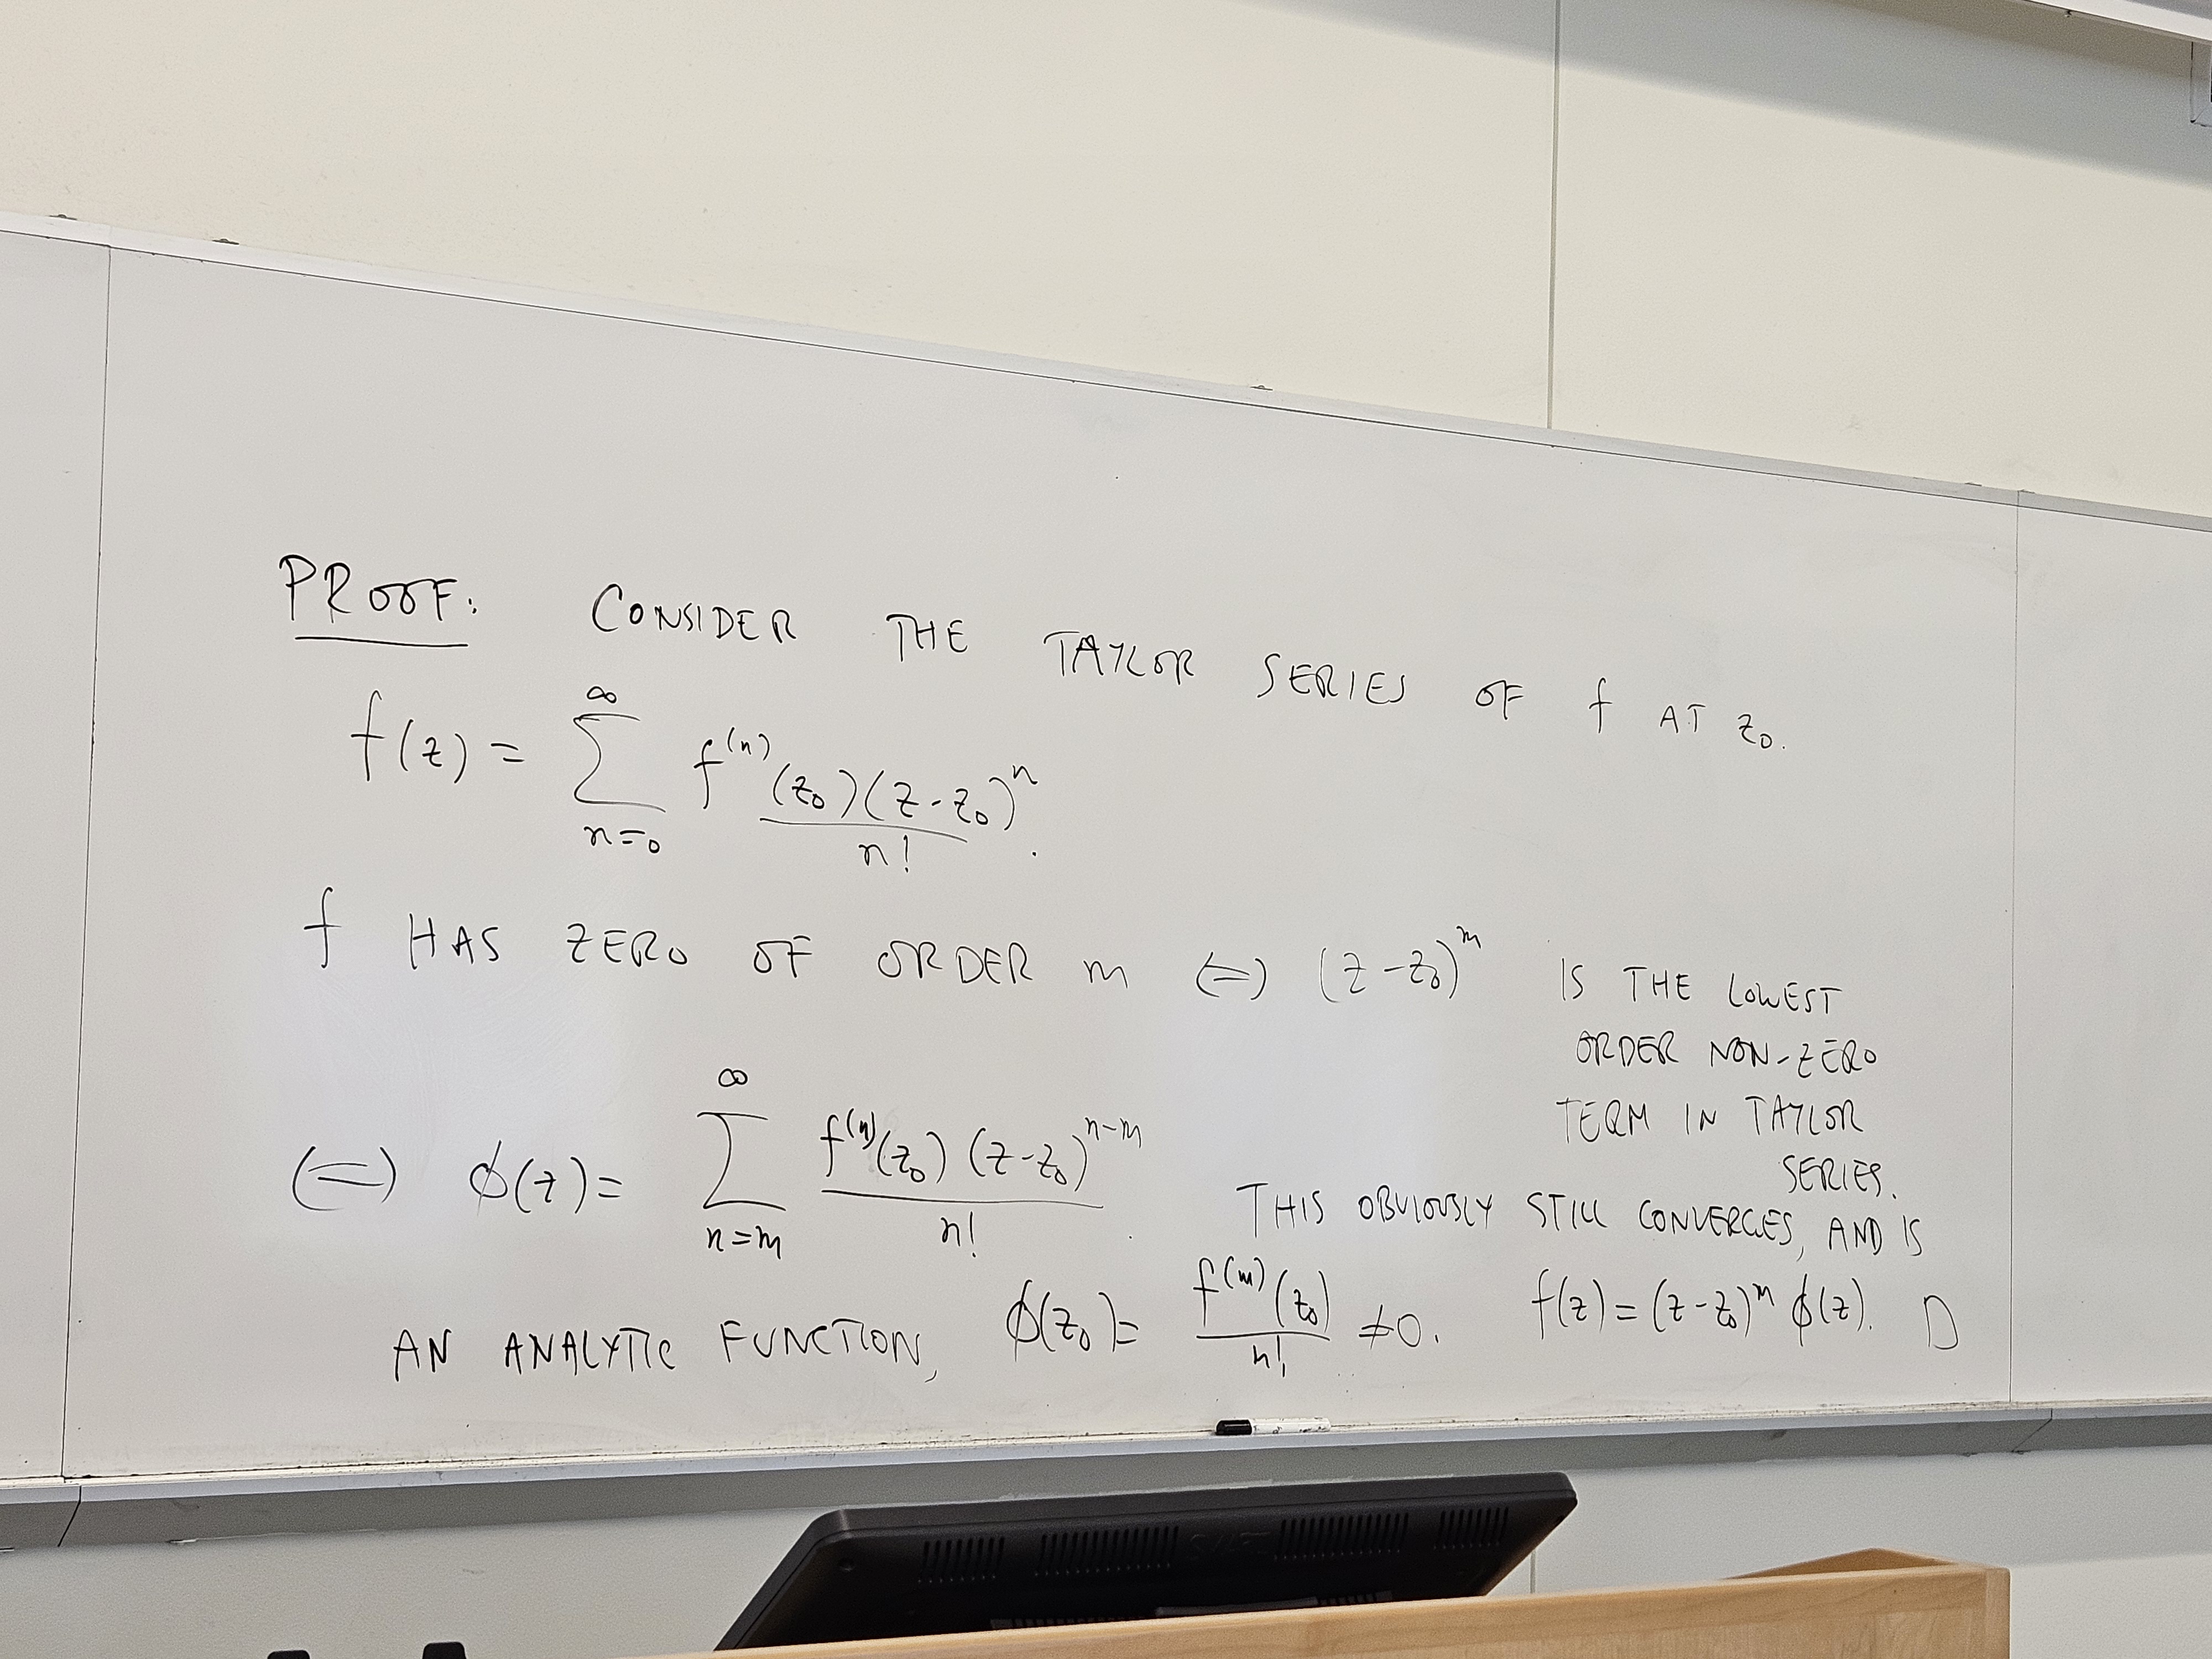 PROOF: CONSIDER THE TAYLOR SERIES OF f AT z₀.
f(z) = ∑_{n=0}^{∞} f^{(n)}(z₀)(z-z₀)^n / n! .
f HAS ZERO OF ORDER m ⟺ (z-z₀)^m IS THE LOWEST
ORDER NON-ZERO
TERM IN TAYLOR
SERIES.
⟺ ϕ(z) = ∑_{n=m}^{∞} f^{(n)}(z₀)(z-z₀)^{n-m} / n! . THIS OBVIOUSLY STILL CONVERGES, AND IS
AN ANALYTIC FUNCTION, ϕ(z₀) = f^{(m)}(z₀) / n! ≠ 0. f(z) = (z-z₀)^m ϕ(z). □